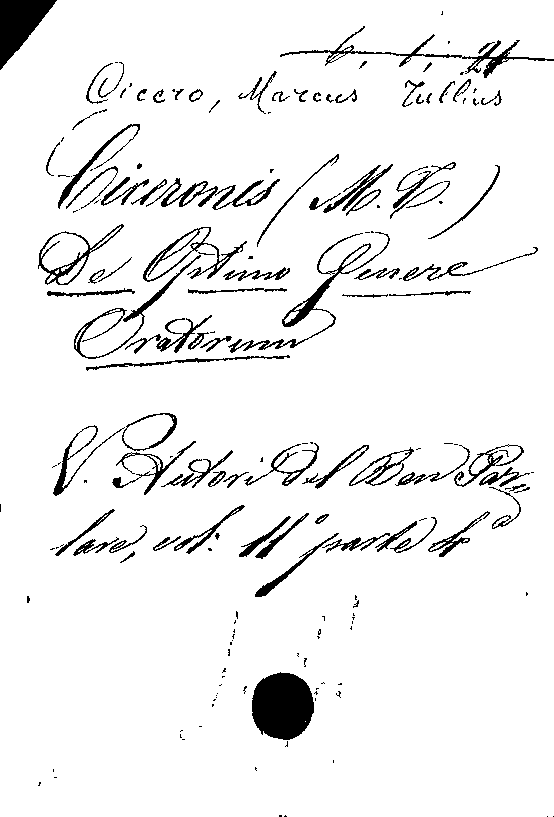 6, 1, 21
Cicero, Marcus Tullius
Ciceronis (M. T.)
De Optimo Genere
Oratorum
V. Autori del Ben Par=
lare, vol: 11° parte 4ª